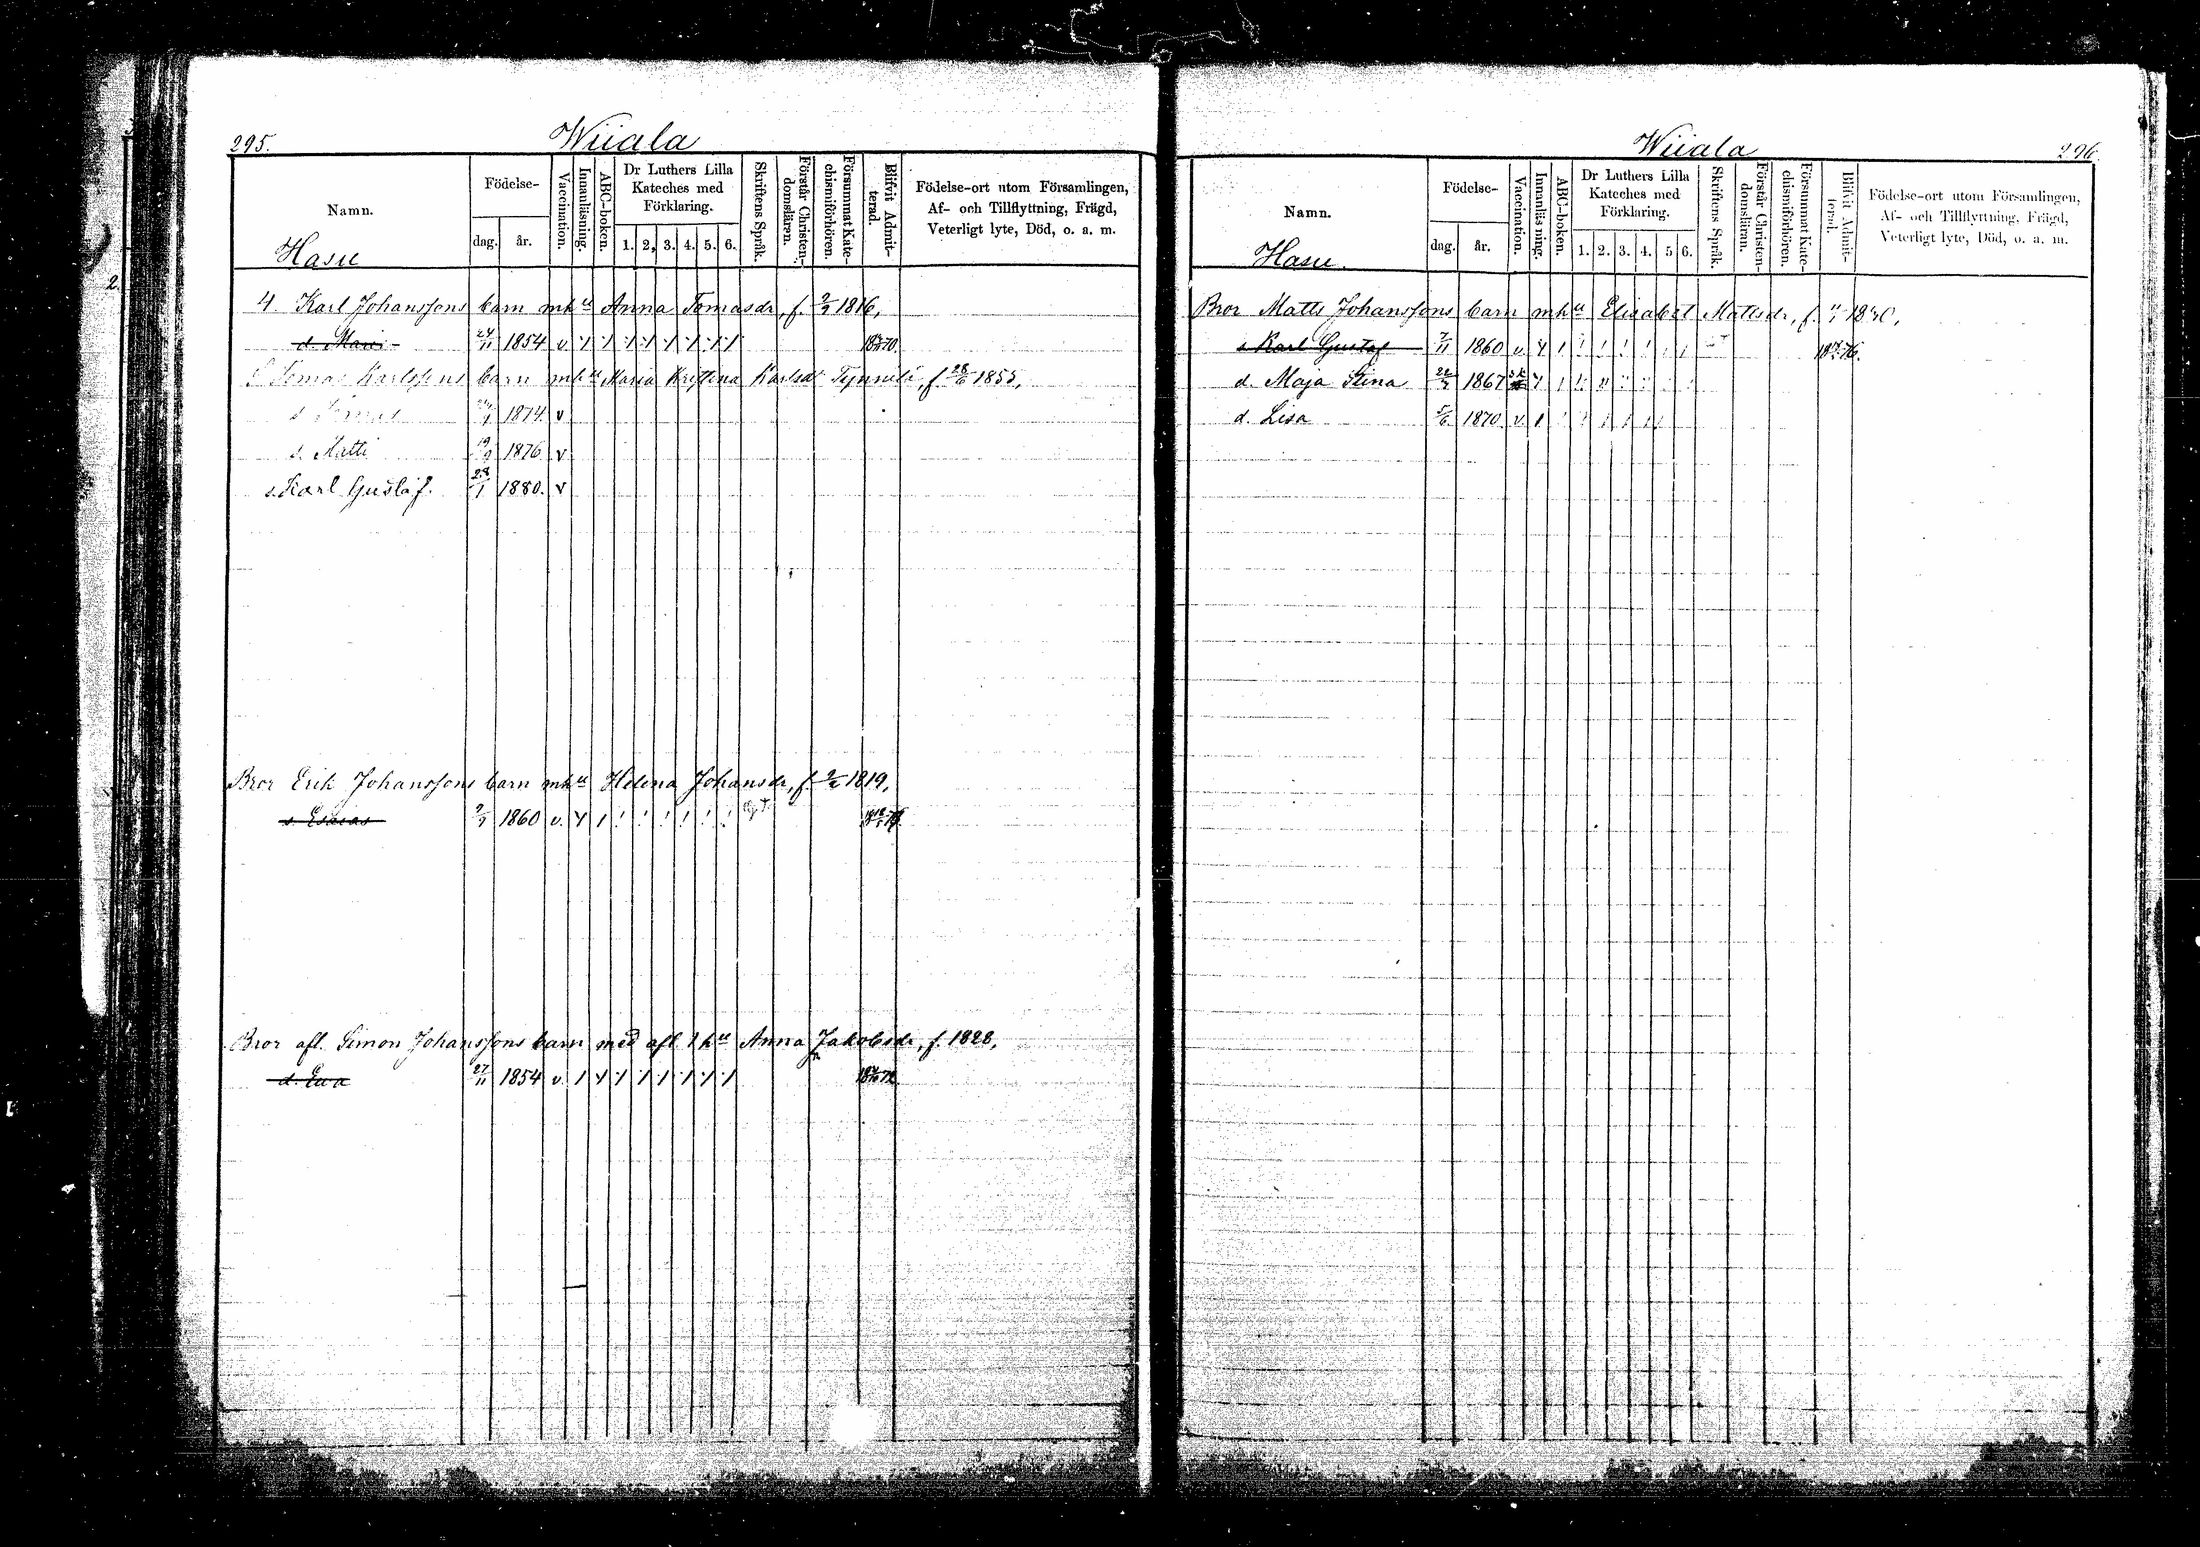 295.
Wiiala
Namn.
Födelse-
dag.
år.
Vaccination.
Innanläsning.
ABC-boken.
Dr Luthers Lilla
Kateches med
Förklaring.
1. 2, 3. 4. 5. 6.
Skriftens Språk.
Förstår Christen-
domsläran.
Försummat Kate-
chismiförhören.
Blifvit Admit-
terad.
Födelse-ort utom Församlingen,
Af- och Tillflyttning, Frägd,
Veterligt lyte, Död, o. a. m.
Hasu
4. Karl Johanssons barn mhu Anna Tomasdr, f. 1816,
d. Maria 24/11 1854 v.
Tomas Karlssons barn mhu Maria Kristina Karlsdr f. 28/6 1855,
s. Tomas 1874. v
s. Matti 19/9 1876 v
s. Karl Gustaf. 28/1 1880. v
Bror Erik Johanssons barn mhu Helena Johansdr, f. 1819,
s. Esaias 1860 v.
Bror afl. Simon Johanssons barn med afl. 1 hu Anna Jakobsdr, f. 1828,
d. Eva 27/11 1854 v.
Wiiala
296.
Namn.
Födelse-
dag.
år.
Vaccination.
Innanläsning.
ABC-boken.
Dr Luthers Lilla
Kateches med
Förklaring.
1. 2. 3. 4. 5 6.
Skriftens Språk.
Förstår Christen-
domsläran.
Försummat Kate-
chismiförhören.
Blifvit Admit-
terad.
Födelse-ort utom Församlingen,
Af- och Tillflyttning, Frägd,
Veterligt lyte, Död, o. a. m.
Hasu.
Bror Matts Johanssons barn mhu Elisabet Mattsdr, f.
s. Karl Gustaf 7/11 1860 v.
d. Maja Stina 1867
d. Lisa 5/6 1870. v.